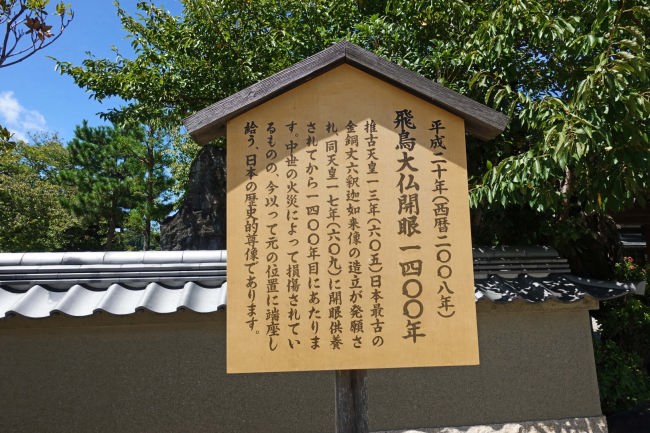 平成二十年（西暦二〇〇八年）
飛鳥大仏開眼一四〇〇年
推古天皇一三年（六〇五）日本最古の
金銅丈六釈迦如来像の造立が発願さ
れ、同天皇一七年（六〇九）に開眼供養
されてから一四〇〇年目にあたりま
す。中世の火災によって損傷されてい
るものの、今以って元の位置に端座し
給う、日本の歴史的尊像であります。